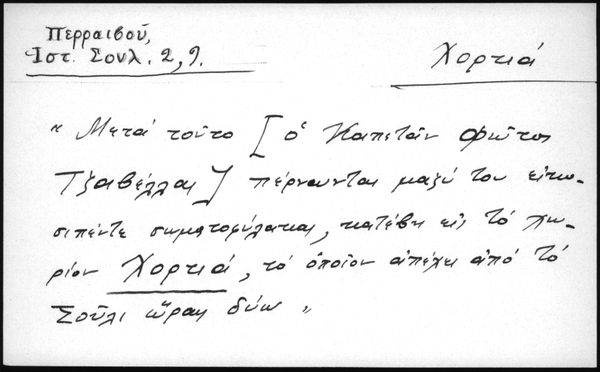 Περραιβοῦ,
Ἱστ. Σουλ. 2, 9.
Χορτιά
" Μετά τοῦτο [ ὁ Καπετάν Φῶτος
Τζαβέλλας ] πέρνωνται μαζύ του εἰκω-
σιπέντε σωματοφύλακας, κατέβη εἰς τό χω-
ρίον Χορτιά, τό ὁποῖον ἀπέχει ἀπό τό
Σοῦλι ὥρας δύω "